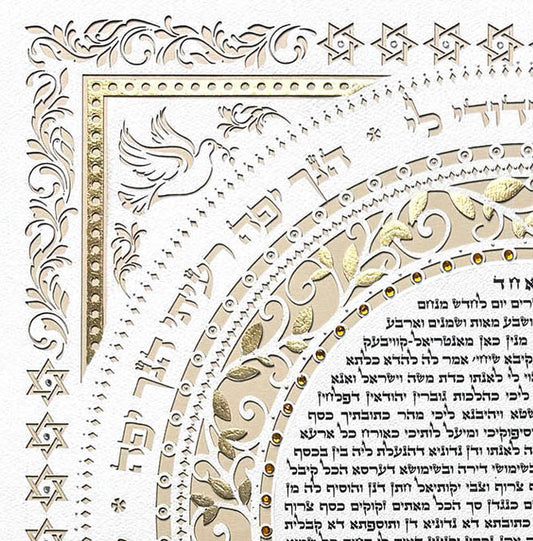 דודי לי
הנך יפה רעיתי הנך יפה
אחד
רים יום לחדש מנחם
ושבע מאות ושמנים וארבע
מנין כאן מאנטריאל-קוויבעק
קיבא שיחי׳ אמר לה להדא כלתא
וי לי לאנתו כדת משה וישראל ואנא
ליכי כהלכות גוברין יהודאין דפלחין
שטא ויהיבנא ליכי מהר כתובתיך כסף
סיפוקיכי ומיעל לותיכי כאורח כל ארעא
ה לאנתו ודן נדוניא דהנעלת ליה בין בכסף
שימושי דירה ובשימושא דערסא הכל קיבל
ף צרוף וצבי יקותיאל חתן דנן והוסיף לה מן
ם כנגדן סך הכל מאתים זקוקים כסף צרוף
כתובתא דא נדוניא דין ותוספתא דא קבלית